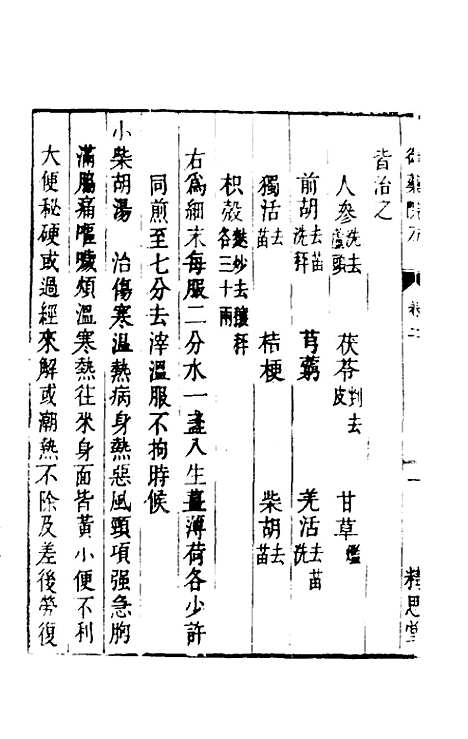 御藥院方 卷二 一 精思堂
皆治之
人參洗去蘆頭 茯苓剉去皮 甘草爁
前胡去苗洗拜 芎藭 羌活去苗洗
獨活去苗 桔梗 柴胡去苗
枳殼麩炒去穰拜各三十兩
右爲細末每服二分水一盞入生薑薄荷各少許
同煎至七分去滓溫服不拘時候
小柴胡湯 治傷寒温熱病身熱惡風頸項强急胸
滿脇痛嘔噦煩溫寒熱往來身面皆黃小便不利
大便秘硬或過經來解或潮熱不除及差後勞復